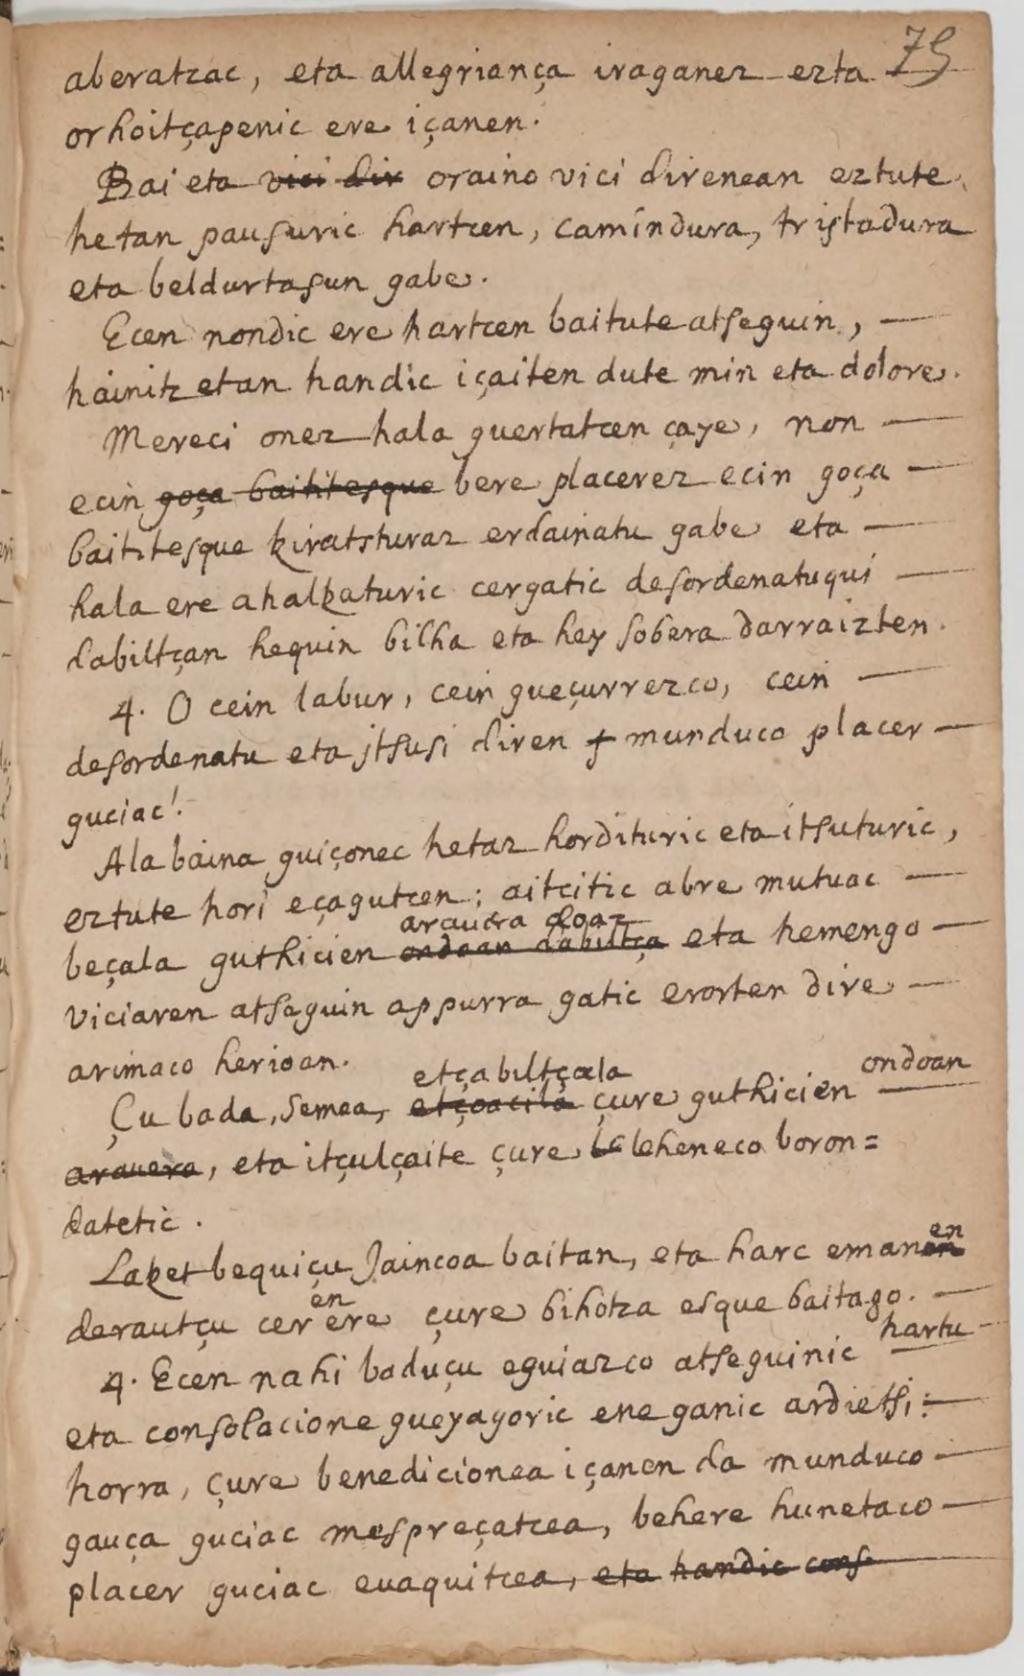 75
aberatzac, eta allegriança iraganez ezta
orhoitçapenic ere içanen.
Bai eta vici dir oraino vici direnean eztute
hetan pausuric hartcen, camindura, tristadura
eta beldurtasun gabe.
Ecen nondic ere hartcen baitute atseguin,
hainitzetan handic içaiten dute min eta dolore.
Mereci onez hala guertatcen çaye, non
ecin goça baititesque bere placerez ecin goça
baititesque kiratsturaz erdainatu gabe eta
hala ere ahalkaturic cergatic desordenatuqui
dabiltçan hequin bilha eta hey sobera darraizten.
4. O cein labur, cein gueçurrezco, cein
desordenatu eta itsusi diren munduco placer
guciac!
Ala baina guiçonec hetaz hordituric eta itsuturic,
eztute hori eçagutcen; aitcitic abre mutuac
arauera doaz
beçala guthicien ondoan dabiltça eta hemengo
viciaren atseguin appurra gatic erorten dire
arimaco herioan.
etçabiltçala ondoan
Çu bada, semea, etçoacila çure guthicien
arauera, eta itçulçaite çure leheneco boron=
datetic.
en
Laket bequiçu Jaincoa baitan, eta harc emanen
en
derautçu cer ere çure bihotza esque baitago.
hartu
4. Ecen nahi baduçu eguiazco atseguinic
eta consolacione gueyagoric ene ganic ardietsi:
horra, çure benedicionea içanen da munduco
gauça guciac mespreçatcea, behere hunetaco
placer guciac evaquitcea, eta handic cons